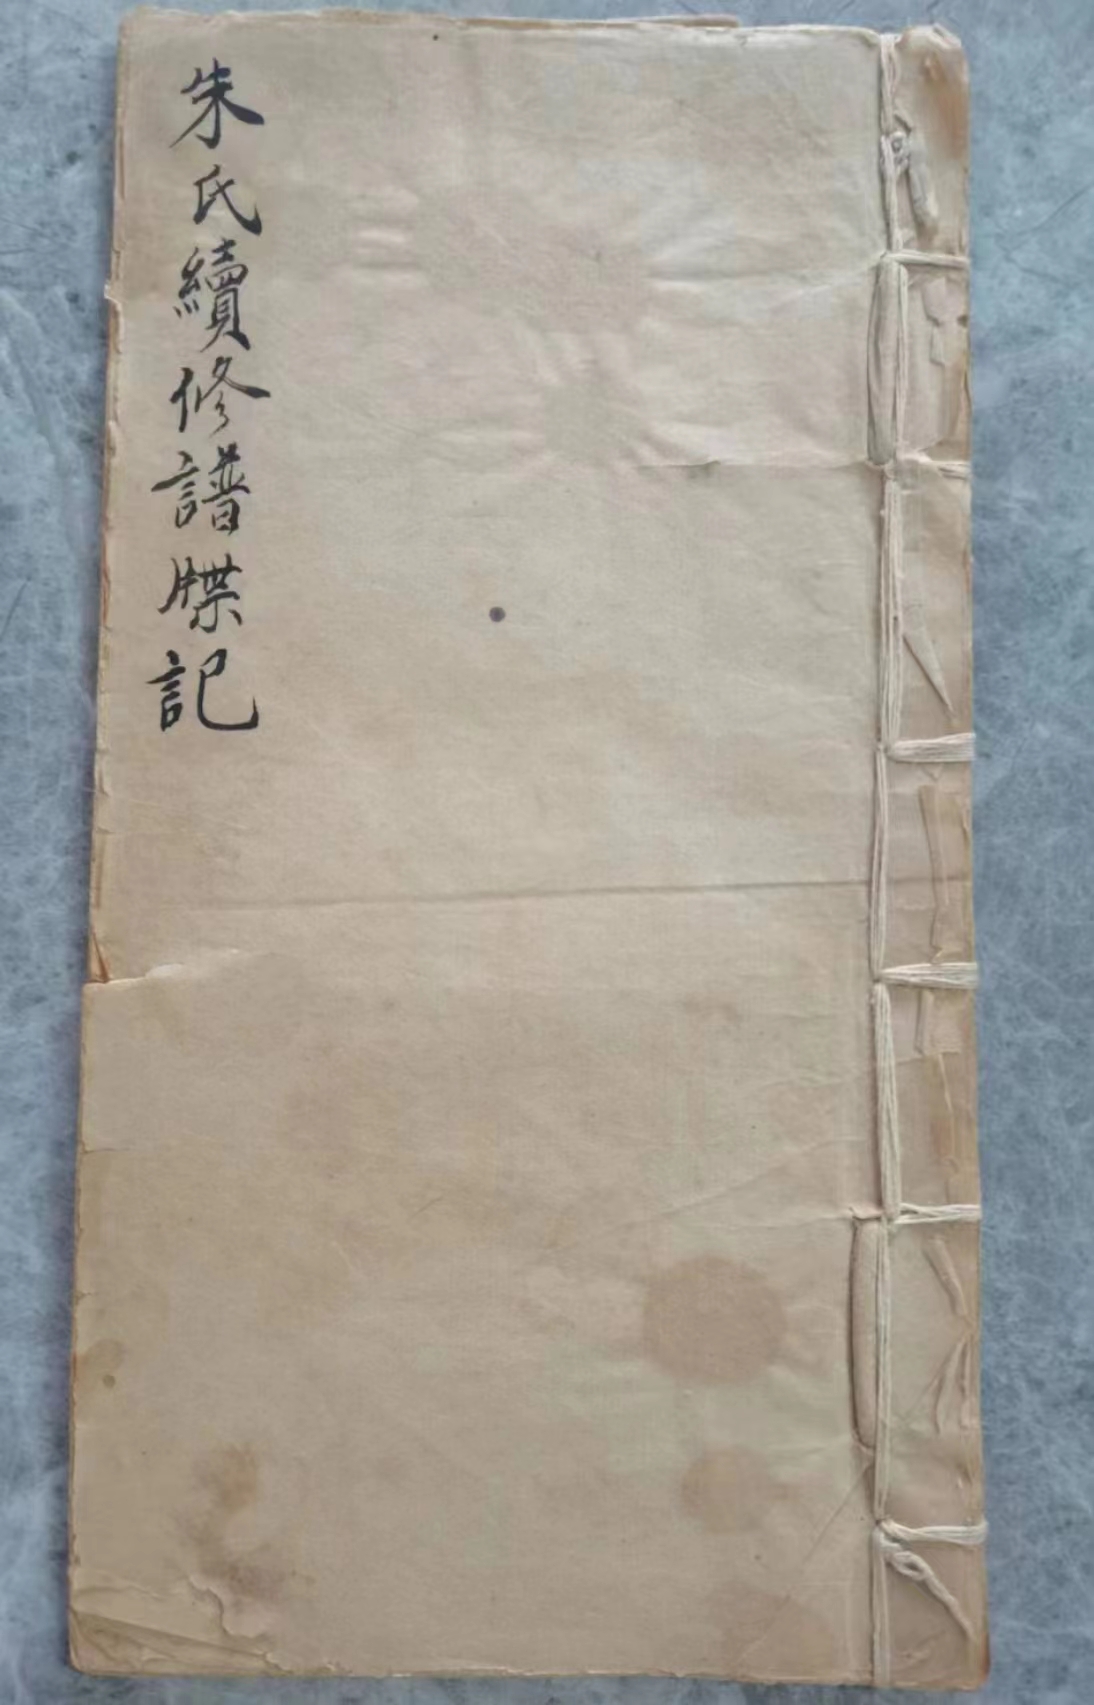 朱氏續修譜牒記